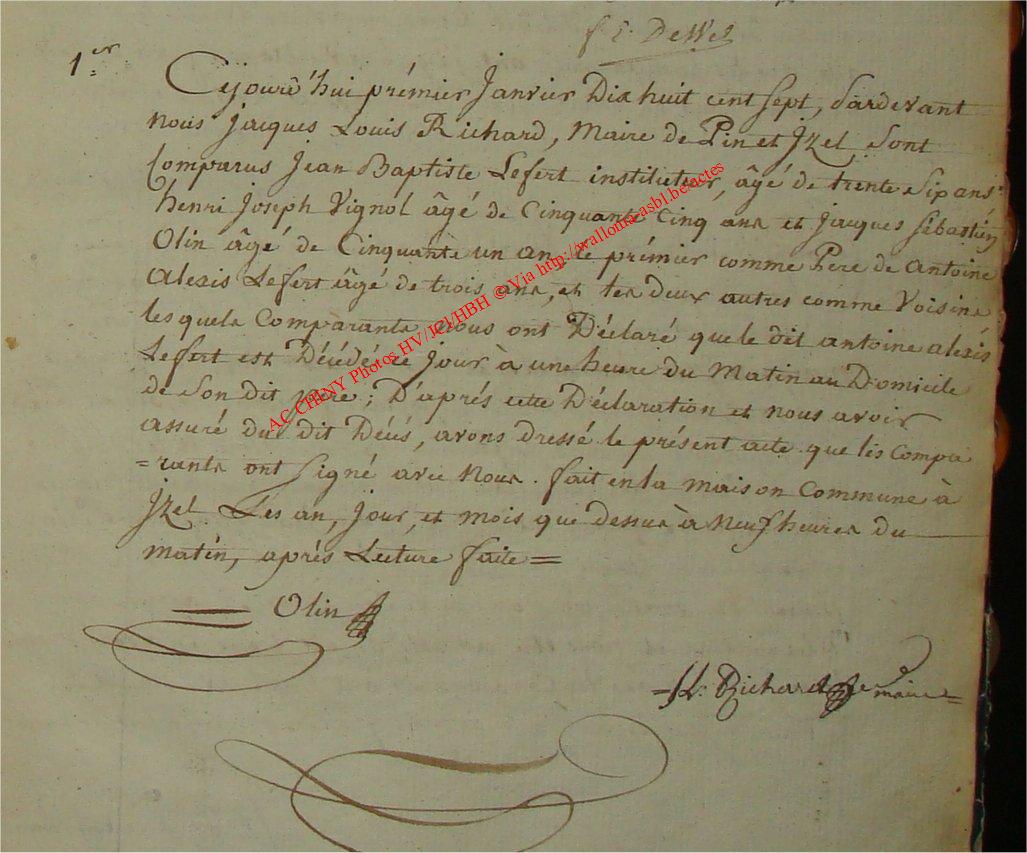 1er
Cejourd'hui prémier Janvier Dix huit cent sept, Pardevant
nous Jacques Louis Richard, Maire de Pin et Jzel sont
Comparus Jean Baptiste Lefert instituteur, âgé de trente Six ans
henri Joseph Vignol âgé de Cinquante Cinq ans et Jacques Sébastien
Olin âgé de Cinquante un an, le prémier comme Pere de Antoine
Alexis Lefert âgé de trois ans, et les deux autres comme Voisins
lesquels Comparants nous ont Déclaré que le dit antoine alexis
Lefert est Décédé ce Jour à une heure du Matin au Domicile
de Son dit pere; D'aprés cette Déclaration et nous avoir
assuré du dit Décés, avons dressé le présent acte que les Compa
=rants ont Signé avec Nous. fait en la maison Commune à
Jzel Les an, Jour, et mois que dessus à Neuf heures du
matin, aprés Lecture faite =
Olin
Richard maire
AC CHINY Photos HV/JCl/HBH © Via http://wallonia-asbl.be/actes